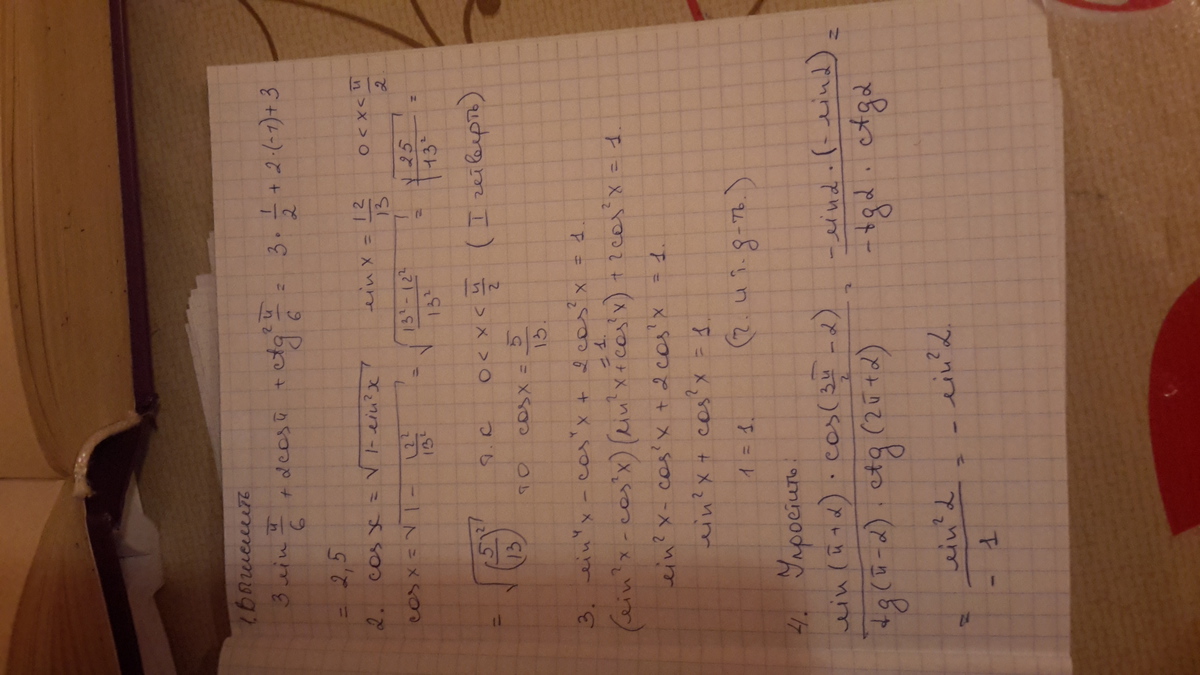 1 Вычислить
3 sin π/6 + 2cosπ + ctg² π/6 = 3 · 1/2 + 2·(-1)+3
= 2,5
2. cos x = √(1 - sin²x) sin x = 12/13 0 < x < π/2
cos x = √(1 - 12²/13²) = √((13² - 12²)/13²) = √(25/13²) =
= √((5/13)²) т.к 0 < x < π/2 (I четверть)
то cos x = 5/13.
3. sin⁴x - cos⁴x + 2cos²x = 1.
(sin²x - cos²x)(sin²x + cos²x) + 2cos²x = 1.
= 1.
sin²x - cos²x + 2cos²x = 1.
sin²x + cos²x = 1.
1 = 1. (ч. и т. д-ть.)
4. Упростить:
sin(π+α) · cos(3π/2 - α) / tg(π-α) · ctg(2π+α) = -sinα · (-sinα) / -tgα · ctgα =
= sin²α / -1 = - sin²α.